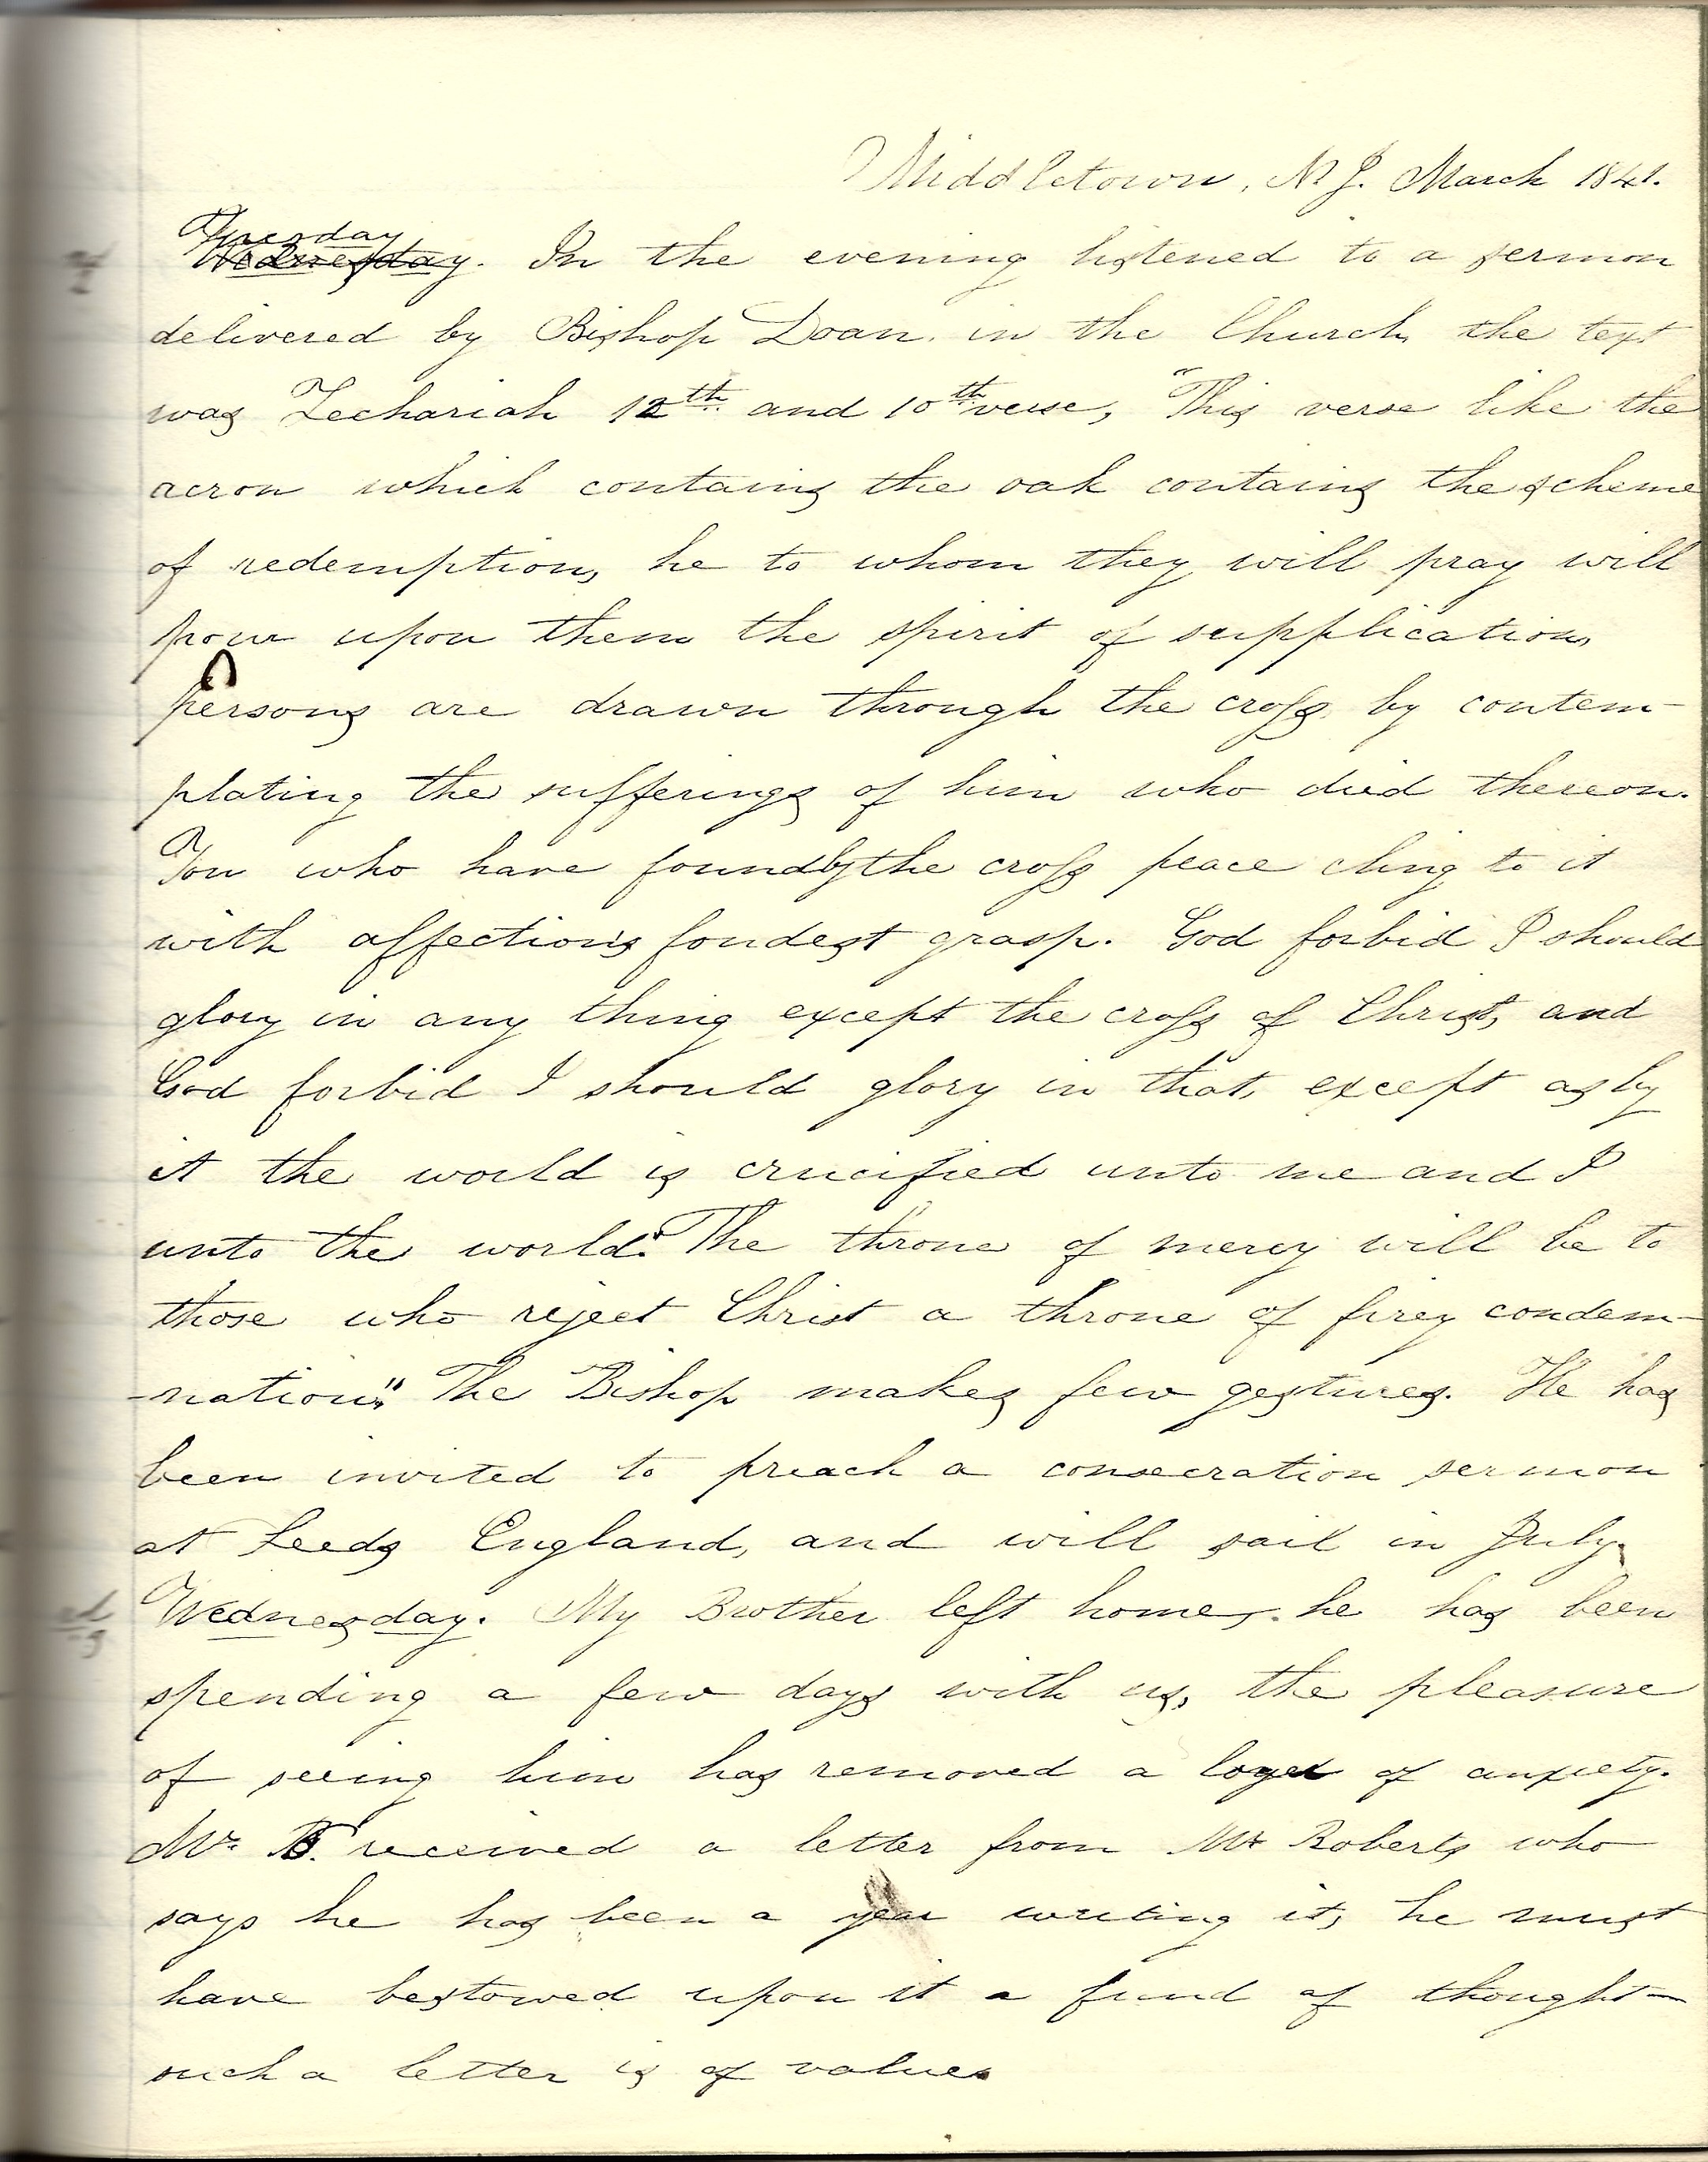 Middletown, N J. March 1841.
Tuesday
Wednesday. In the evening listened to a sermon
delivered by Bishop Doan, in the Church, the text
was Zechariah 12th. and 10th verse, "This verse like the
acron which contains the oak contains the scheme
of redemption, he to whom they will pray will
pour upon them the spirit of supplication,
persons are drawn through the cross, by contem-
plating the sufferings of him who died thereon.
You who have found by the cross peace cling to it
with affection's fondest grasp. God forbid I should
glory in any thing except the cross of Christ, and
God forbid I should glory in that, except as by
it the world is crucified unto me and I
unto the world. The throne of mercy will be to
those who reject Christ a throne of firey condem-
-nation". The Bishop makes few gestures. He has
been invited to preach a consecration sermon
at Leeds England, and will sail in July.
Wednesday. My Brother left home, he has been
spending a few days with us, the pleasure
of seeing him has removed a of anxiety.
Mr. B. received a letter from Mr Roberts who
says he has been a year writing it, he must
have bestowed upon it a fund of thought—
such a letter is of value.